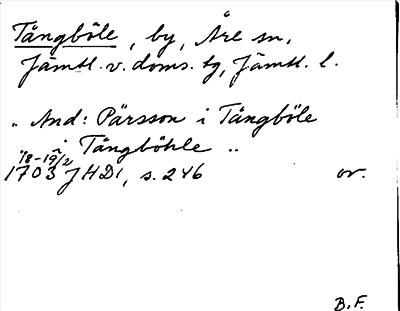 Tångböle, by, Åre sn,
Jämtl. v. doms. tg, Jämtl. l.
„ And: Pärsson i Tångböle
i Tångböhle „
18-19/2
1703 JHD1, s. 246 or.
B.F.